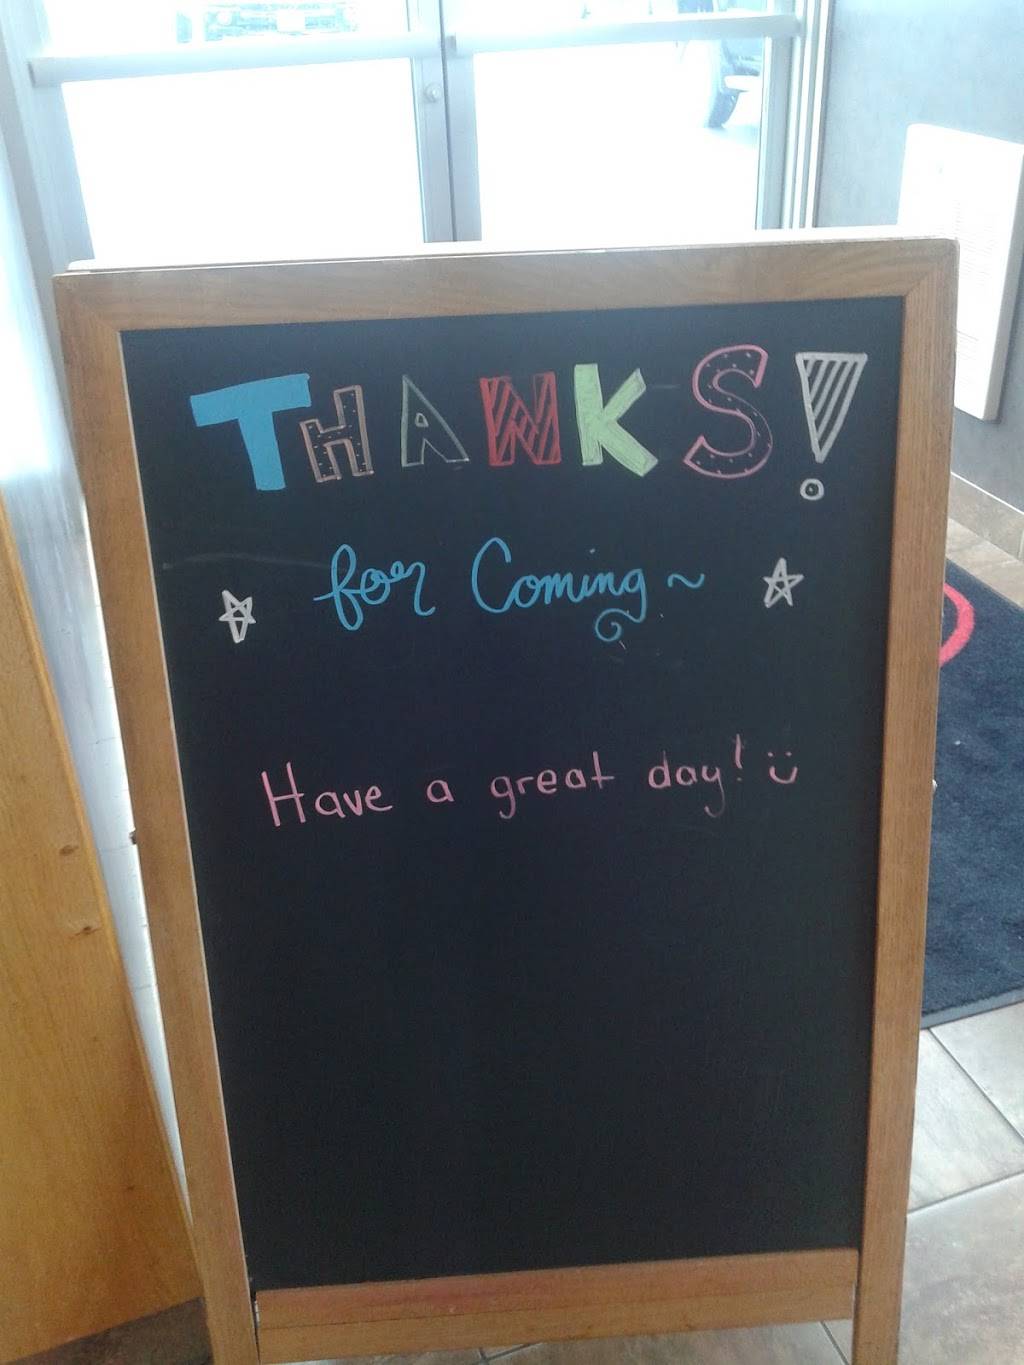 THANKS!
for Coming~
Have a great day! Ü